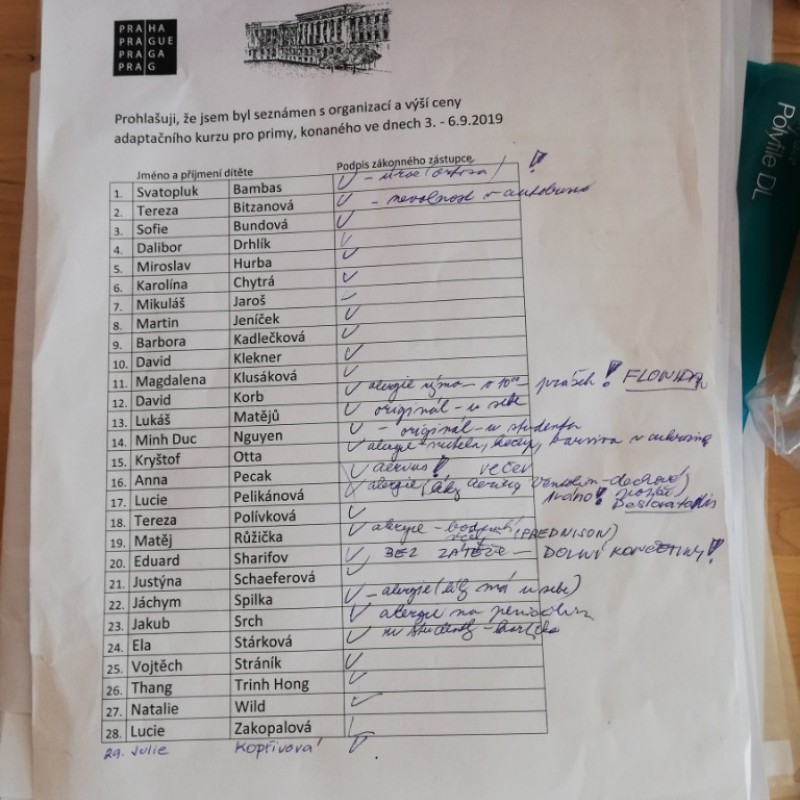 PRAHA
PRAGUE
PRAGA
PRAG
Prohlašuji, že jsem byl seznámen s organizací a výší ceny
adaptačního kurzu pro primy, konaného ve dnech 3. - 6.9.2019
Jméno a příjmení dítěte Podpis zákonného zástupce
1. Svatopluk Bambas
2. Tereza Bitzanová - nevolnost v autobuse
3. Sofie Bundová
4. Dalibor Drhlík
5. Miroslav Hurba
6. Karolína Chytrá
7. Mikuláš Jaroš
8. Martin Jeníček
9. Barbora Kadlečková
10. David Klekner
11. Magdalena Klusáková
12. David Korb alergie rýma prášek!
13. Lukáš Matějů originál - u sebe
14. Minh Duc Nguyen - originál - u studenta
15. Kryštof Otta alergie
16. Anna Pecak aerius! večer
17. Lucie Pelikánová alergie (léky
18. Tereza Polívková
19. Matěj Růžička alergie - (PREDNISON)
20. Eduard Sharifov BEZ ZÁTĚŽE - DOLNÍ KONČETINY!
21. Justýna Schaeferová
22. Jáchym Spilka - alergie (léky má u sebe)
23. Jakub Srch alergie na penicilin
24. Ela Stárková
25. Vojtěch Stráník
26. Thang Trinh Hong
27. Natalie Wild
28. Lucie Zakopalová
29. Julie Kopřivová
Polyfile DL